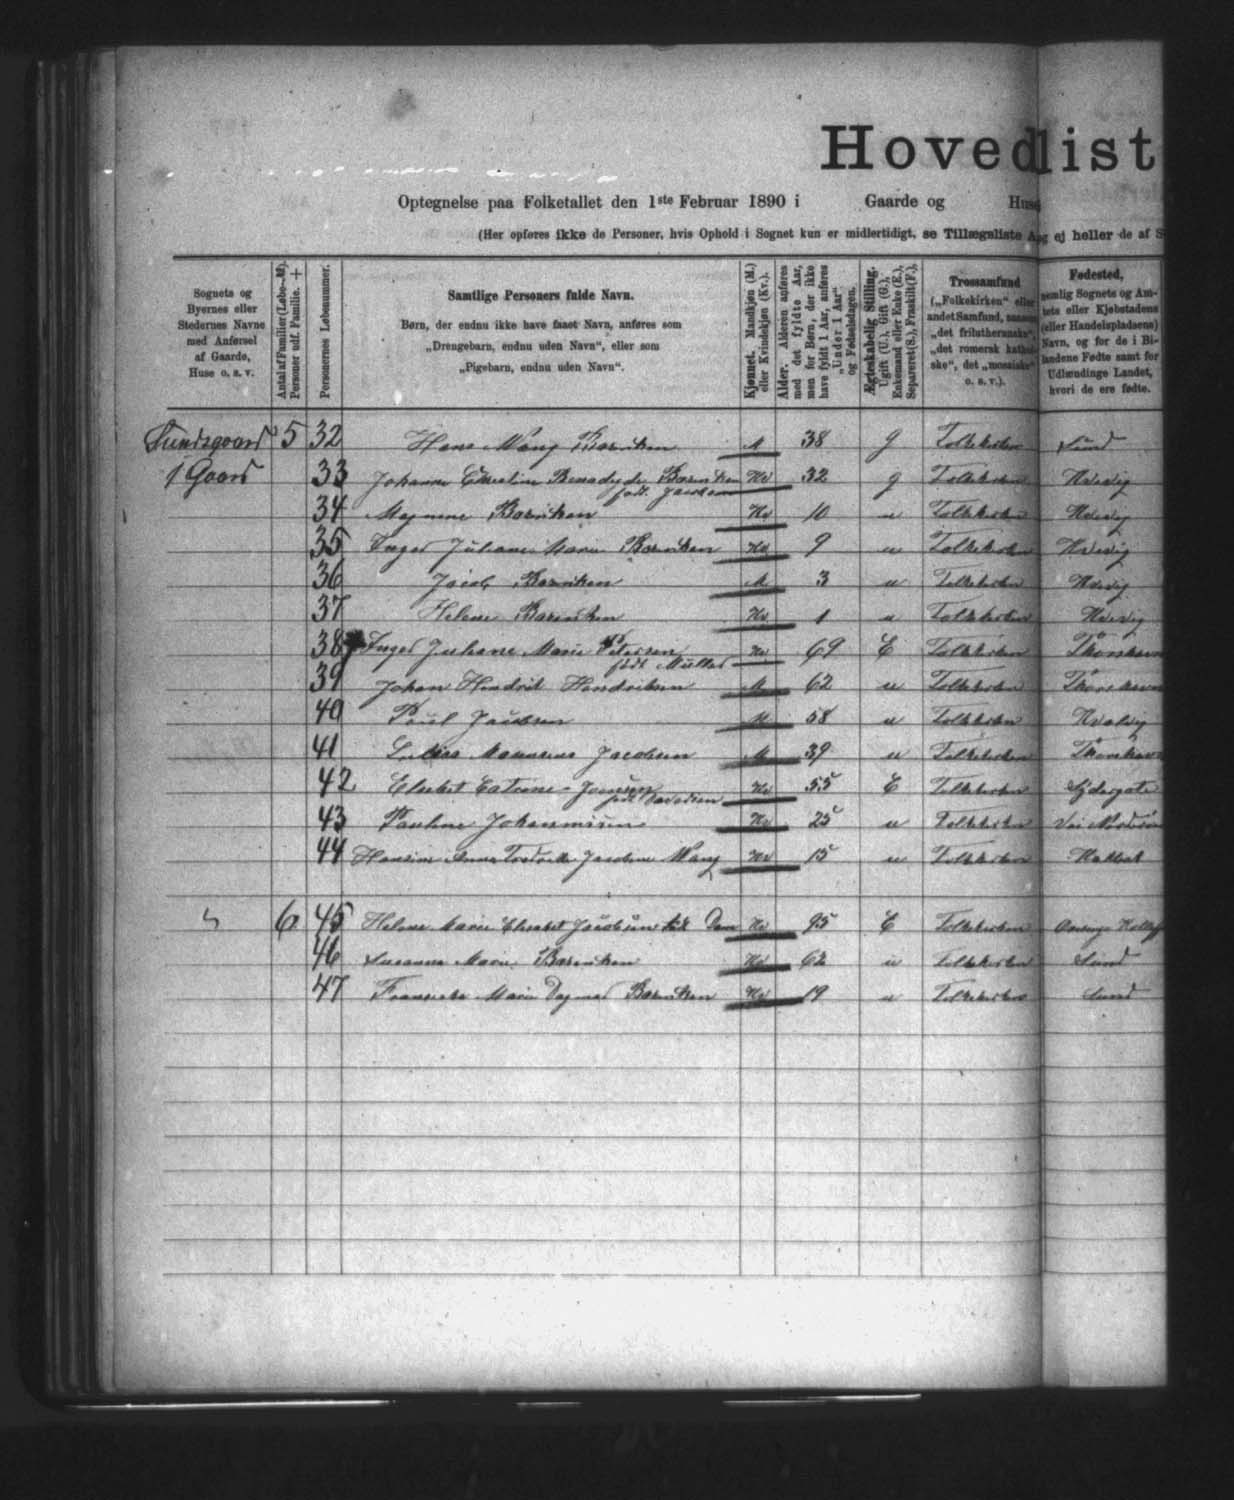 Hovedlist
Optegnelse paa Folketallet den 1ste Februar 1890 i Gaarde og Huse
(Her opføres ikke de Personer, hvis Ophold i Sognet kun er midlertidigt, se Tillægsliste A, og ej heller de af S
Sognets og Byernes eller Stedernes Navne med Anførsel af Gaarde, Huse o. s. v.
Antal af Familier (Løbe-№). Personer udf. Familie. +
Personernes Løbenummer.
Samtlige Personers fulde Navn.
Børn, der endnu ikke have faaet Navn, anføres som
„Drengebarn, endnu uden Navn“, eller som
„Pigebarn, endnu uden Navn“.
Kjønnet. Mandkjøn (M.) eller Kvindekjøn (Kv.).
Alder. Alderen anføres med det fyldte Aar, men for Børn, der ikke have fyldt 1 Aar, anføres „Under 1 Aar“ og Fødselsdagen.
Ægteskabelig Stilling. Ugift (U.), Gift (G.), Enkemand eller Enke (E.), Separeret (S.), Fraskilt (F.).
Trossamfund („Folkekirken“ eller andet Samfund, saasom „det frilutheranske“, „det romersk katholske“, det „mosaiske“ o. s. v.).
Fødested, nemlig Sognets og Amtets eller Kjøbstadens (eller Handelspladsens) Navn, og for de i Bilandene Fødte samt for Udlændinge Landet, hvori de ere fødte.
Sundsgaard 5 32 Hans Wang Bærentsen M 38 g Folkekirken Sund
1 Gaard 33 Johanne Christine Benedegde Bærentsen Kv 32 g Folkekirken Hvivig
født Jacobsen
34 Bærentsen Kv 10 u Folkekirken Hvivig
35 Inger Juliane Marie Bærentsen Kv 9 u Folkekirken Hvivig
36 Jacob Bærentsen M 3 u Folkekirken Hvivig
37 Helene Bærentsen Kv 1 u Folkekirken Hvivig
38 Inger Juliane Marie Petersen Kv 69 E Folkekirken Thorshavn
født Müller
39 Johan Hendrik Hendriksen M 62 u Folkekirken Thorshavn
40 Poul Jacobsen M 58 u Folkekirken
41 Jacobsen M 39 u Folkekirken Thorshavn
42 Elsebet Catrine Kv 55 E Folkekirken
født Davidsen
43 Pauline Kv 25 u Folkekirken
44 Hansine Anna Jacobine Wang Kv 15 u Folkekirken
6 45 Helene Marie Elsebet Jacobsen født Dam Kv 95 E Folkekirken
46 Susanne Marie Bærentsen Kv 62 u Folkekirken Sund
47 Marie Dagmar Bærentsen Kv 19 u Folkekirken Sund